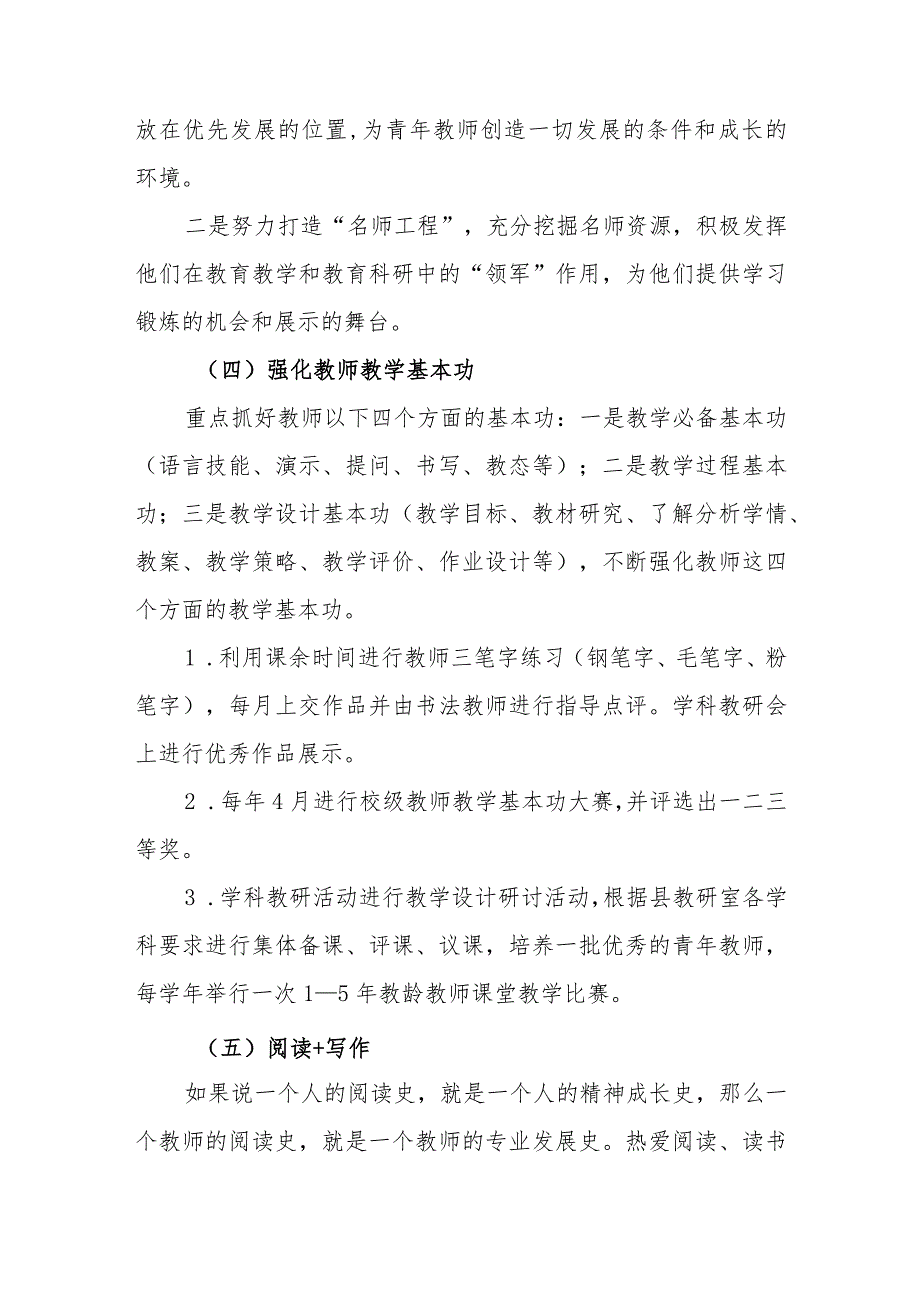 放在优先发展的位置,为青年教师创造一切发展的条件和成长的
环境。
二是努力打造“名师工程”，充分挖掘名师资源，积极发挥
他们在教育教学和教育科研中的“领军”作用，为他们提供学习
锻炼的机会和展示的舞台。
（四）强化教师教学基本功
重点抓好教师以下四个方面的基本功：一是教学必备基本功
（语言技能、演示、提问、书写、教态等）；二是教学过程基本
功；三是教学设计基本功（教学目标、教材研究、了解分析学情、
教案、教学策略、教学评价、作业设计等），不断强化教师这四
个方面的教学基本功。
1 .利用课余时间进行教师三笔字练习（钢笔字、毛笔字、粉
笔字），每月上交作品并由书法教师进行指导点评。学科教研会
上进行优秀作品展示。
2 .每年 4 月进行校级教师教学基本功大赛,并评选出一二三
等奖。
3 .学科教研活动进行教学设计研讨活动,根据县教研室各学
科要求进行集体备课、评课、议课，培养一批优秀的青年教师，
每学年举行一次 1—5 年教龄教师课堂教学比赛。
（五）阅读+写作
如果说一个人的阅读史，就是一个人的精神成长史，那么一
个教师的阅读史，就是一个教师的专业发展史。热爱阅读、读书